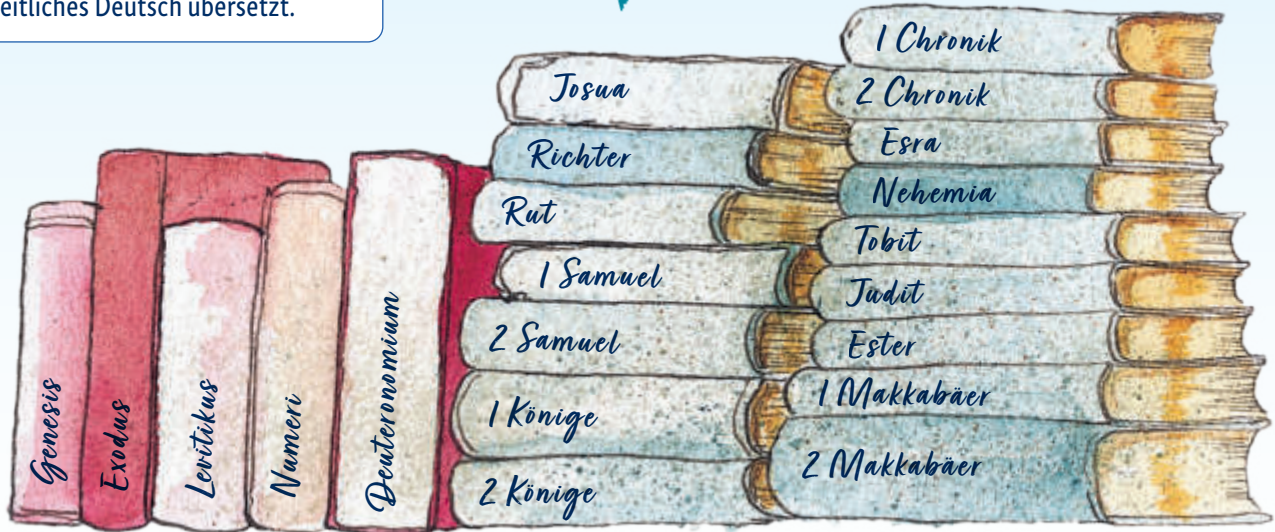 eitliches Deutsch übersetzt.
Genesis
Exodus
Levitikus
Numeri
Deuteronomium
Josua
Richter
Rut
1 Samuel
2 Samuel
1 Könige
2 Könige
1 Chronik
2 Chronik
Esra
Nehemia
Tobit
Judit
Ester
1 Makkabäer
2 Makkabäer